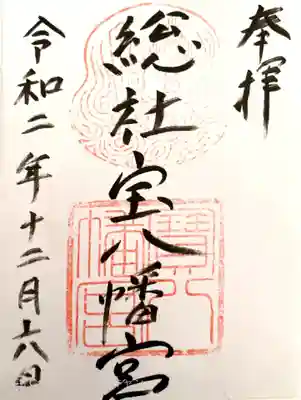 奉拝
総社宝八幡宮
令和二年十二月六日
寳八
幡宮